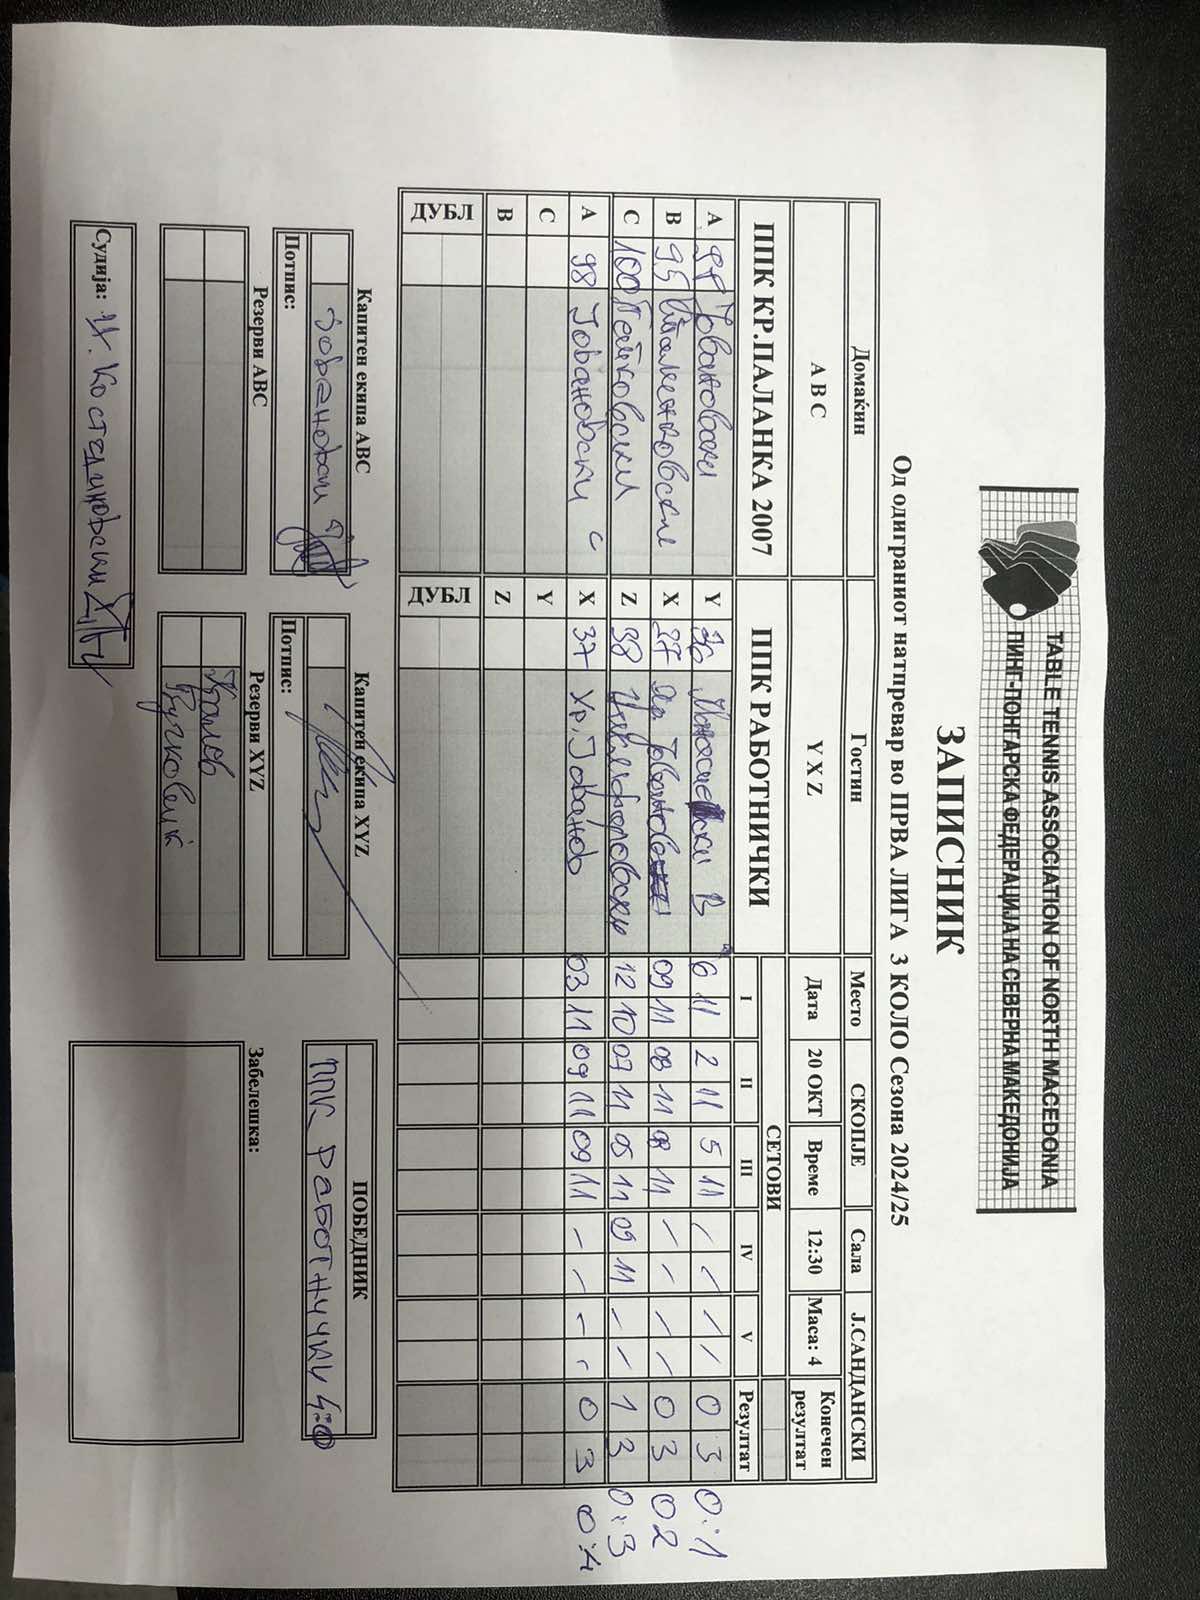 TABLE TENNIS ASSOCIATION OF NORTH MACEDONIA
ПИНГ-ПОНГАРСКА ФЕДЕРАЦИЈА НА СЕВЕРНА МАКЕДОНИЈА
ЗАПИСНИК
Од одиграниот натпревар во ПРВА ЛИГА 3 КОЛО Сезона 2024/25
Домаќин Гостин Место СКОПЈЕ Сала Ј.САНДАНСКИ
A B C Y X Z Дата 20 ОКТ Време 12:30 Маса: 4 Конечен резултат
ППК КР.ПАЛАНКА 2007 ППК РАБОТНИЧКИ СЕТОВИ
I II III IV V Резултат
A 97 Јовановски Y 36 В 6 11 2 11 5 11 / / / / 0 3 0:1
B 95 Стаменковски X 09 11 08 11 08 11 / / / / 0 3 0 2
C 100 Пејковски Z 38 12 10 07 11 05 11 09 11 / / 1 3 0:3
A 98 Јовановски С X 37 Хр. Јованов 03 11 09 11 09 11 - - - - 0 3 0:4
C Y
B Z
ДУБЛ ДУБЛ
Капитен екипа ABC Капитен екипа XYZ ПОБЕДНИК
Јовановски ППК РАБОТНИЧКИ 4:0
Потпис: Потпис:
Резерви ABC Резерви XYZ Забелешка:
Судија: Н. Костадиновски